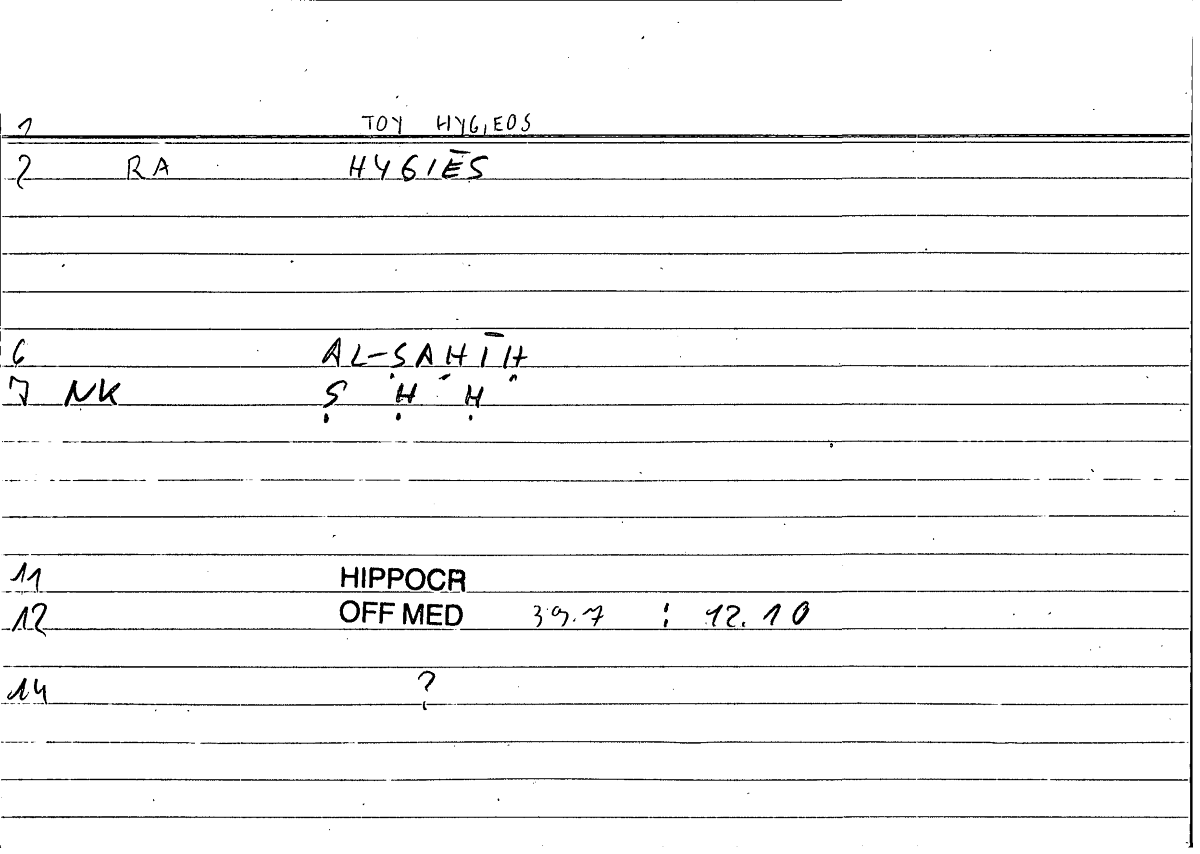 1 TOY HYGIEOS
2 RA HYGIĒS
6 AL-ṢAḤĪḤ
7 NK Ṣ Ḥ Ḥ
11 HIPPOCR
12 OFF MED 39.7 : 12.10
14 ?